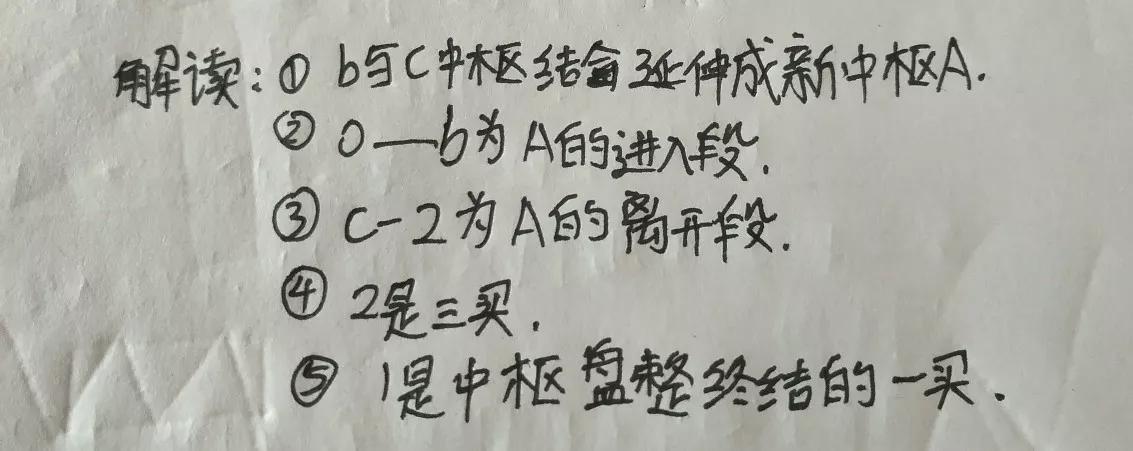 解读:① b与C中枢结合延伸成新中枢A.
② 0—b为A的进入段.
③ C-2为A的离开段.
④ 2是三买.
⑤ 1是中枢盘整终结的一买.